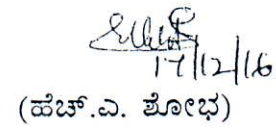 17/12/16
(ಹೆಚ್.ಎ. ಶೋಭ)